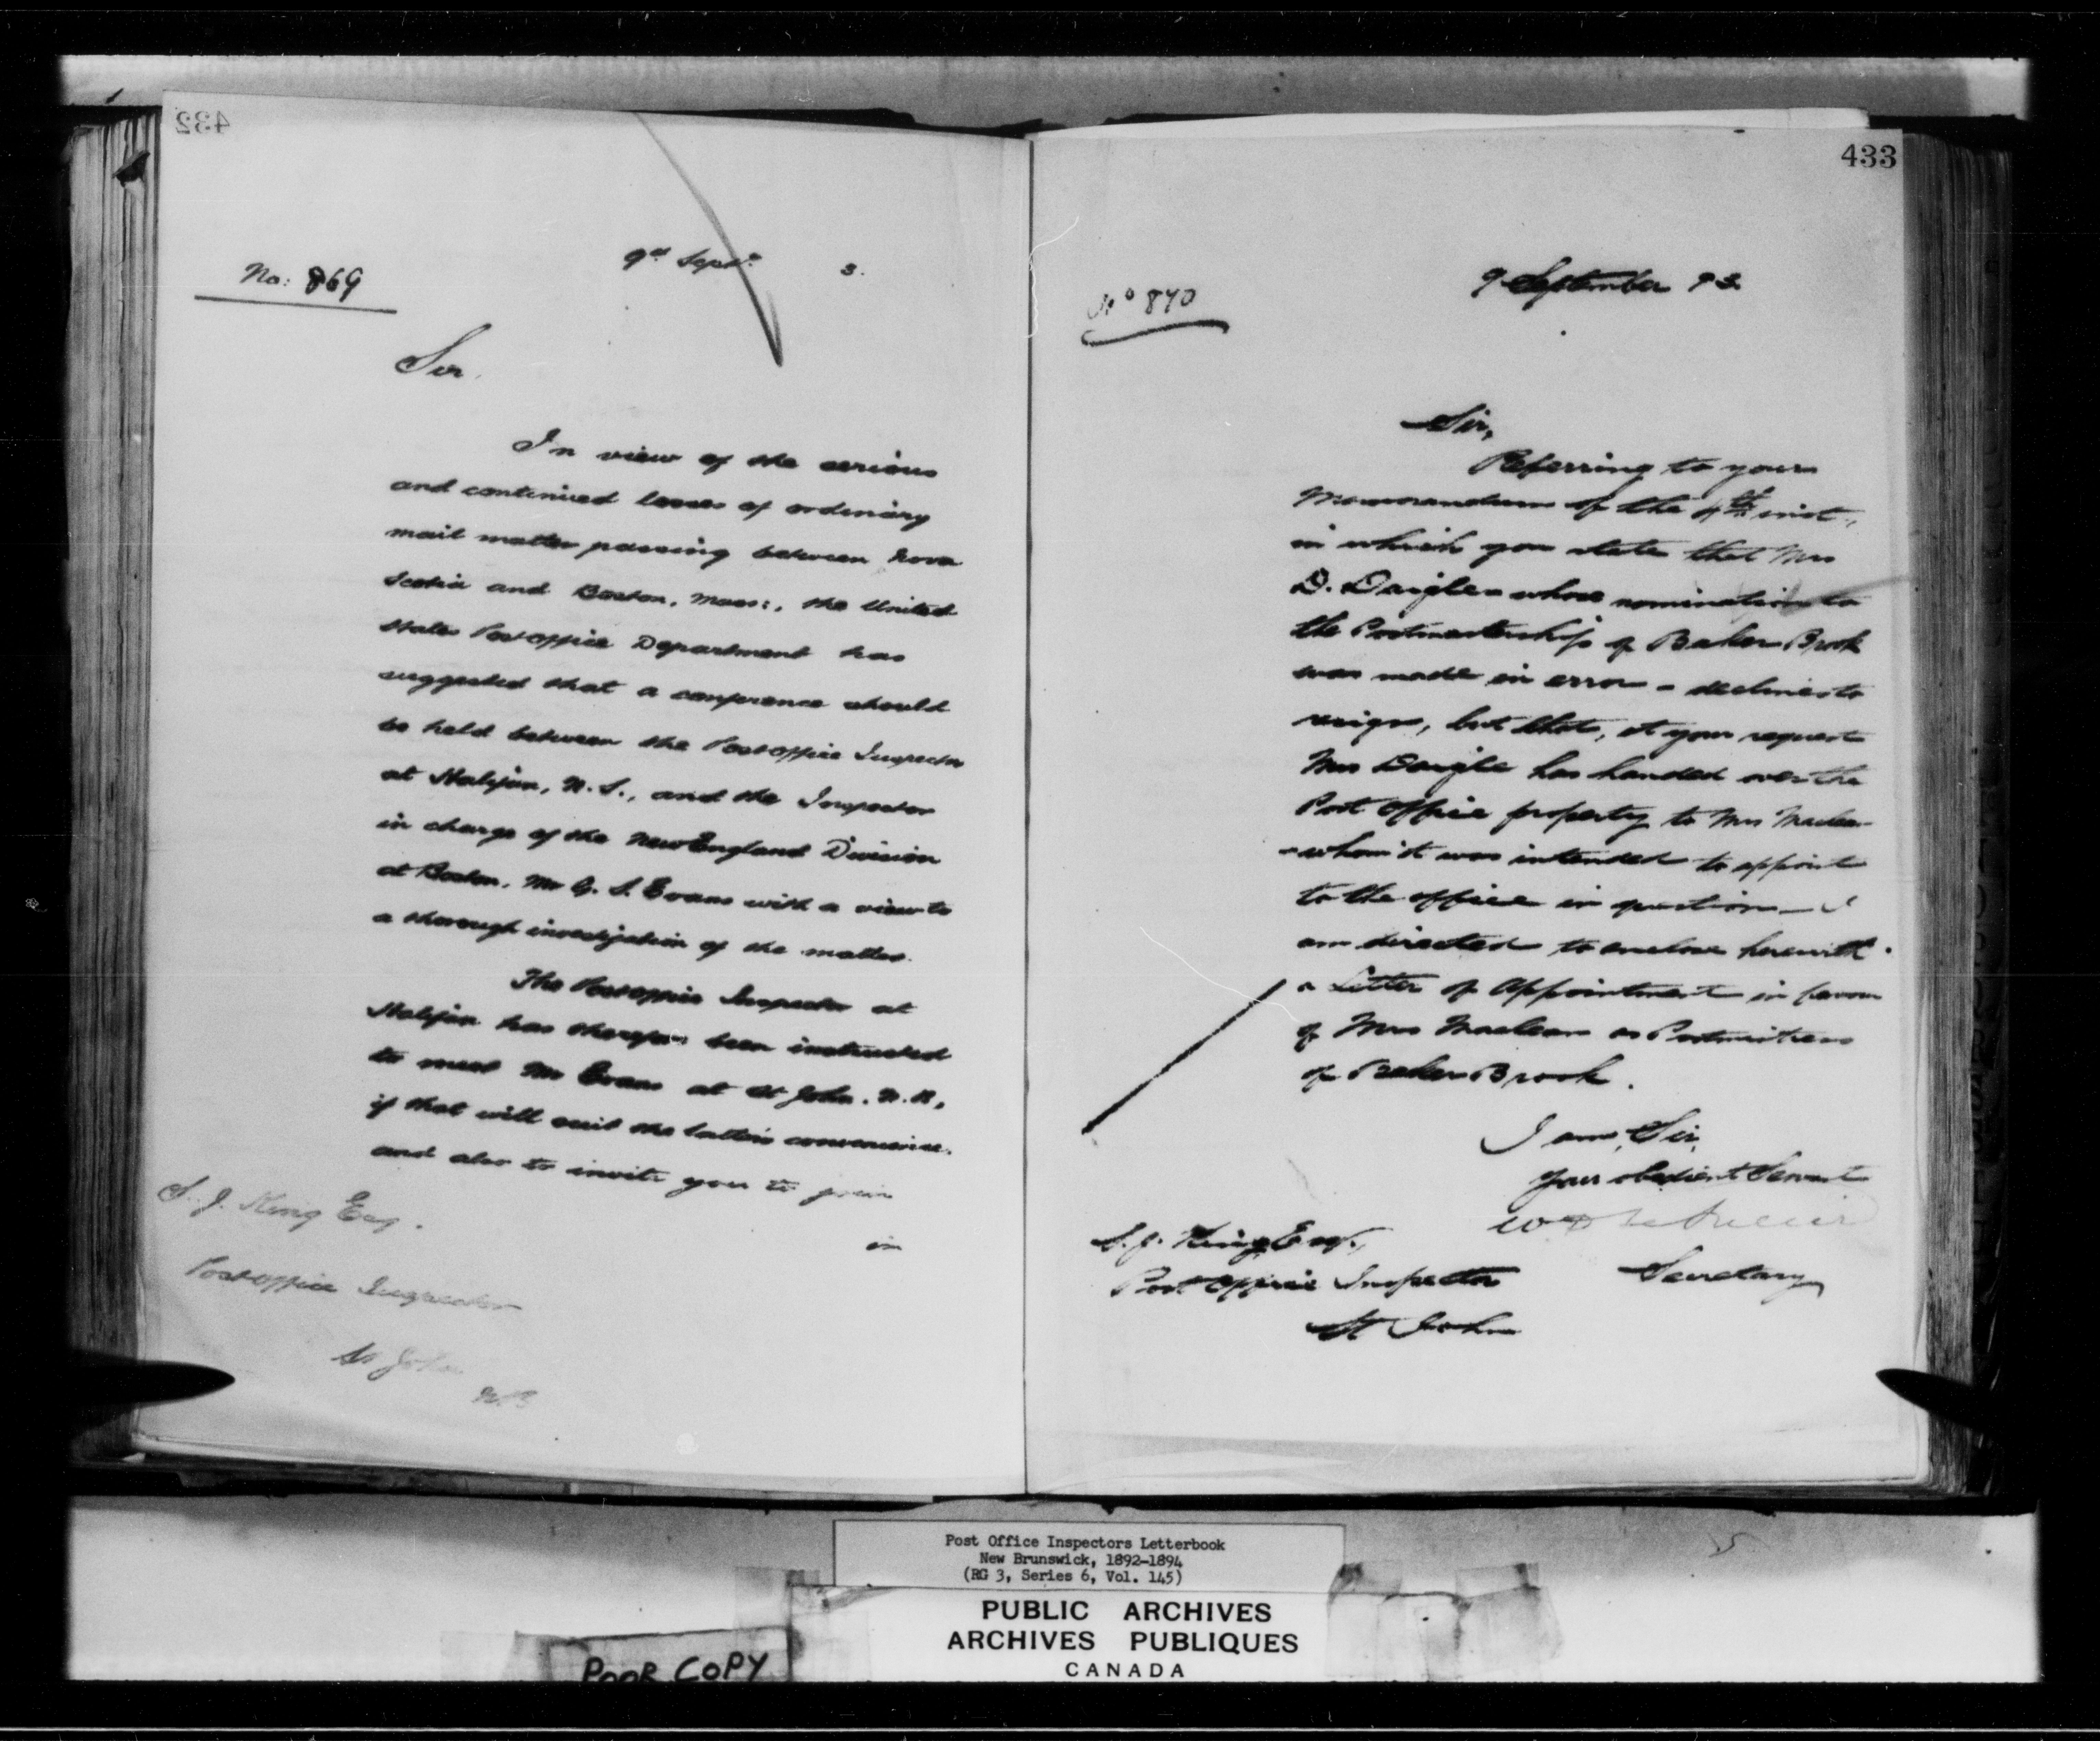 432
No: 869
9th Septr. 3.
Sir,
In view of the serious
and continued losses of ordinary
mail matter passing between Nova
Scotia and Boston, Mass:, the United
States Post Office Department has
suggested that a conference should
be held between the Post Office Inspector
at Halifax, N.S., and the Inspector
in charge of the New England Division
at Boston, Mr G. S. Evans with a view to
a thorough investigation of the matter.
The Post Office Inspector at
Halifax has therefore been instructed
to meet Mr Evans at St John. N.B,
if that will suit the latter's convenience.
and also to invite you to join
in
S. J. King Esq.
Post Office Inspector
St John
N.B
433
No 870
9 September 93
Sir,
Referring to your
Memorandum of the inst.,
in which you state that Mrs
D. Daigle - whose nomination to
the Postmastership of Baker Brook
was made in error - declines to
resign, but that, at your request
Mrs Daigle has handed over the
Post Office property to Mrs Maclean
- whom it was intended to appoint
to the office in question - I
am directed to enclose herewith
a Letter of Appointment in favour
of Mrs Maclean as Postmistress
of Baker Brook.
I am, Sir,
Your obedient Servant
Secretary
S. J. King Esq.,
Post Office Inspector
St John
Post Office Inspectors Letterbook
New Brunswick, 1892-1894
(RG 3, Series 6, Vol. 145)
PUBLIC ARCHIVES
ARCHIVES PUBLIQUES
CANADA
POOR COPY